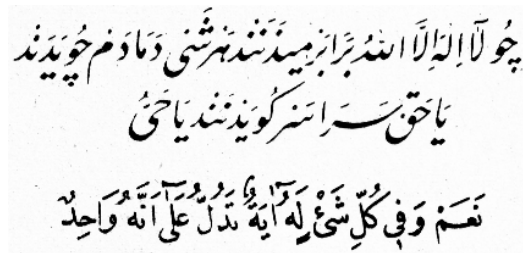 چُو لَآ اِلٰهَ اِلَّا اللهُ بَرَابَرْ مِيدَنَنْد هَرْ شَئی دَمَادَمْ چُو يَدَنْد
يَا حَقْ سَرَاسَرْ كُويَدَنَنْد يَا حَیُّ
نَعَمْ وَفِي كُلِّ شَیْءٍ لَهُ آيَةٌ تَدُلُّ عَلَىٰ اَنَّهُ وَاحِدٌ